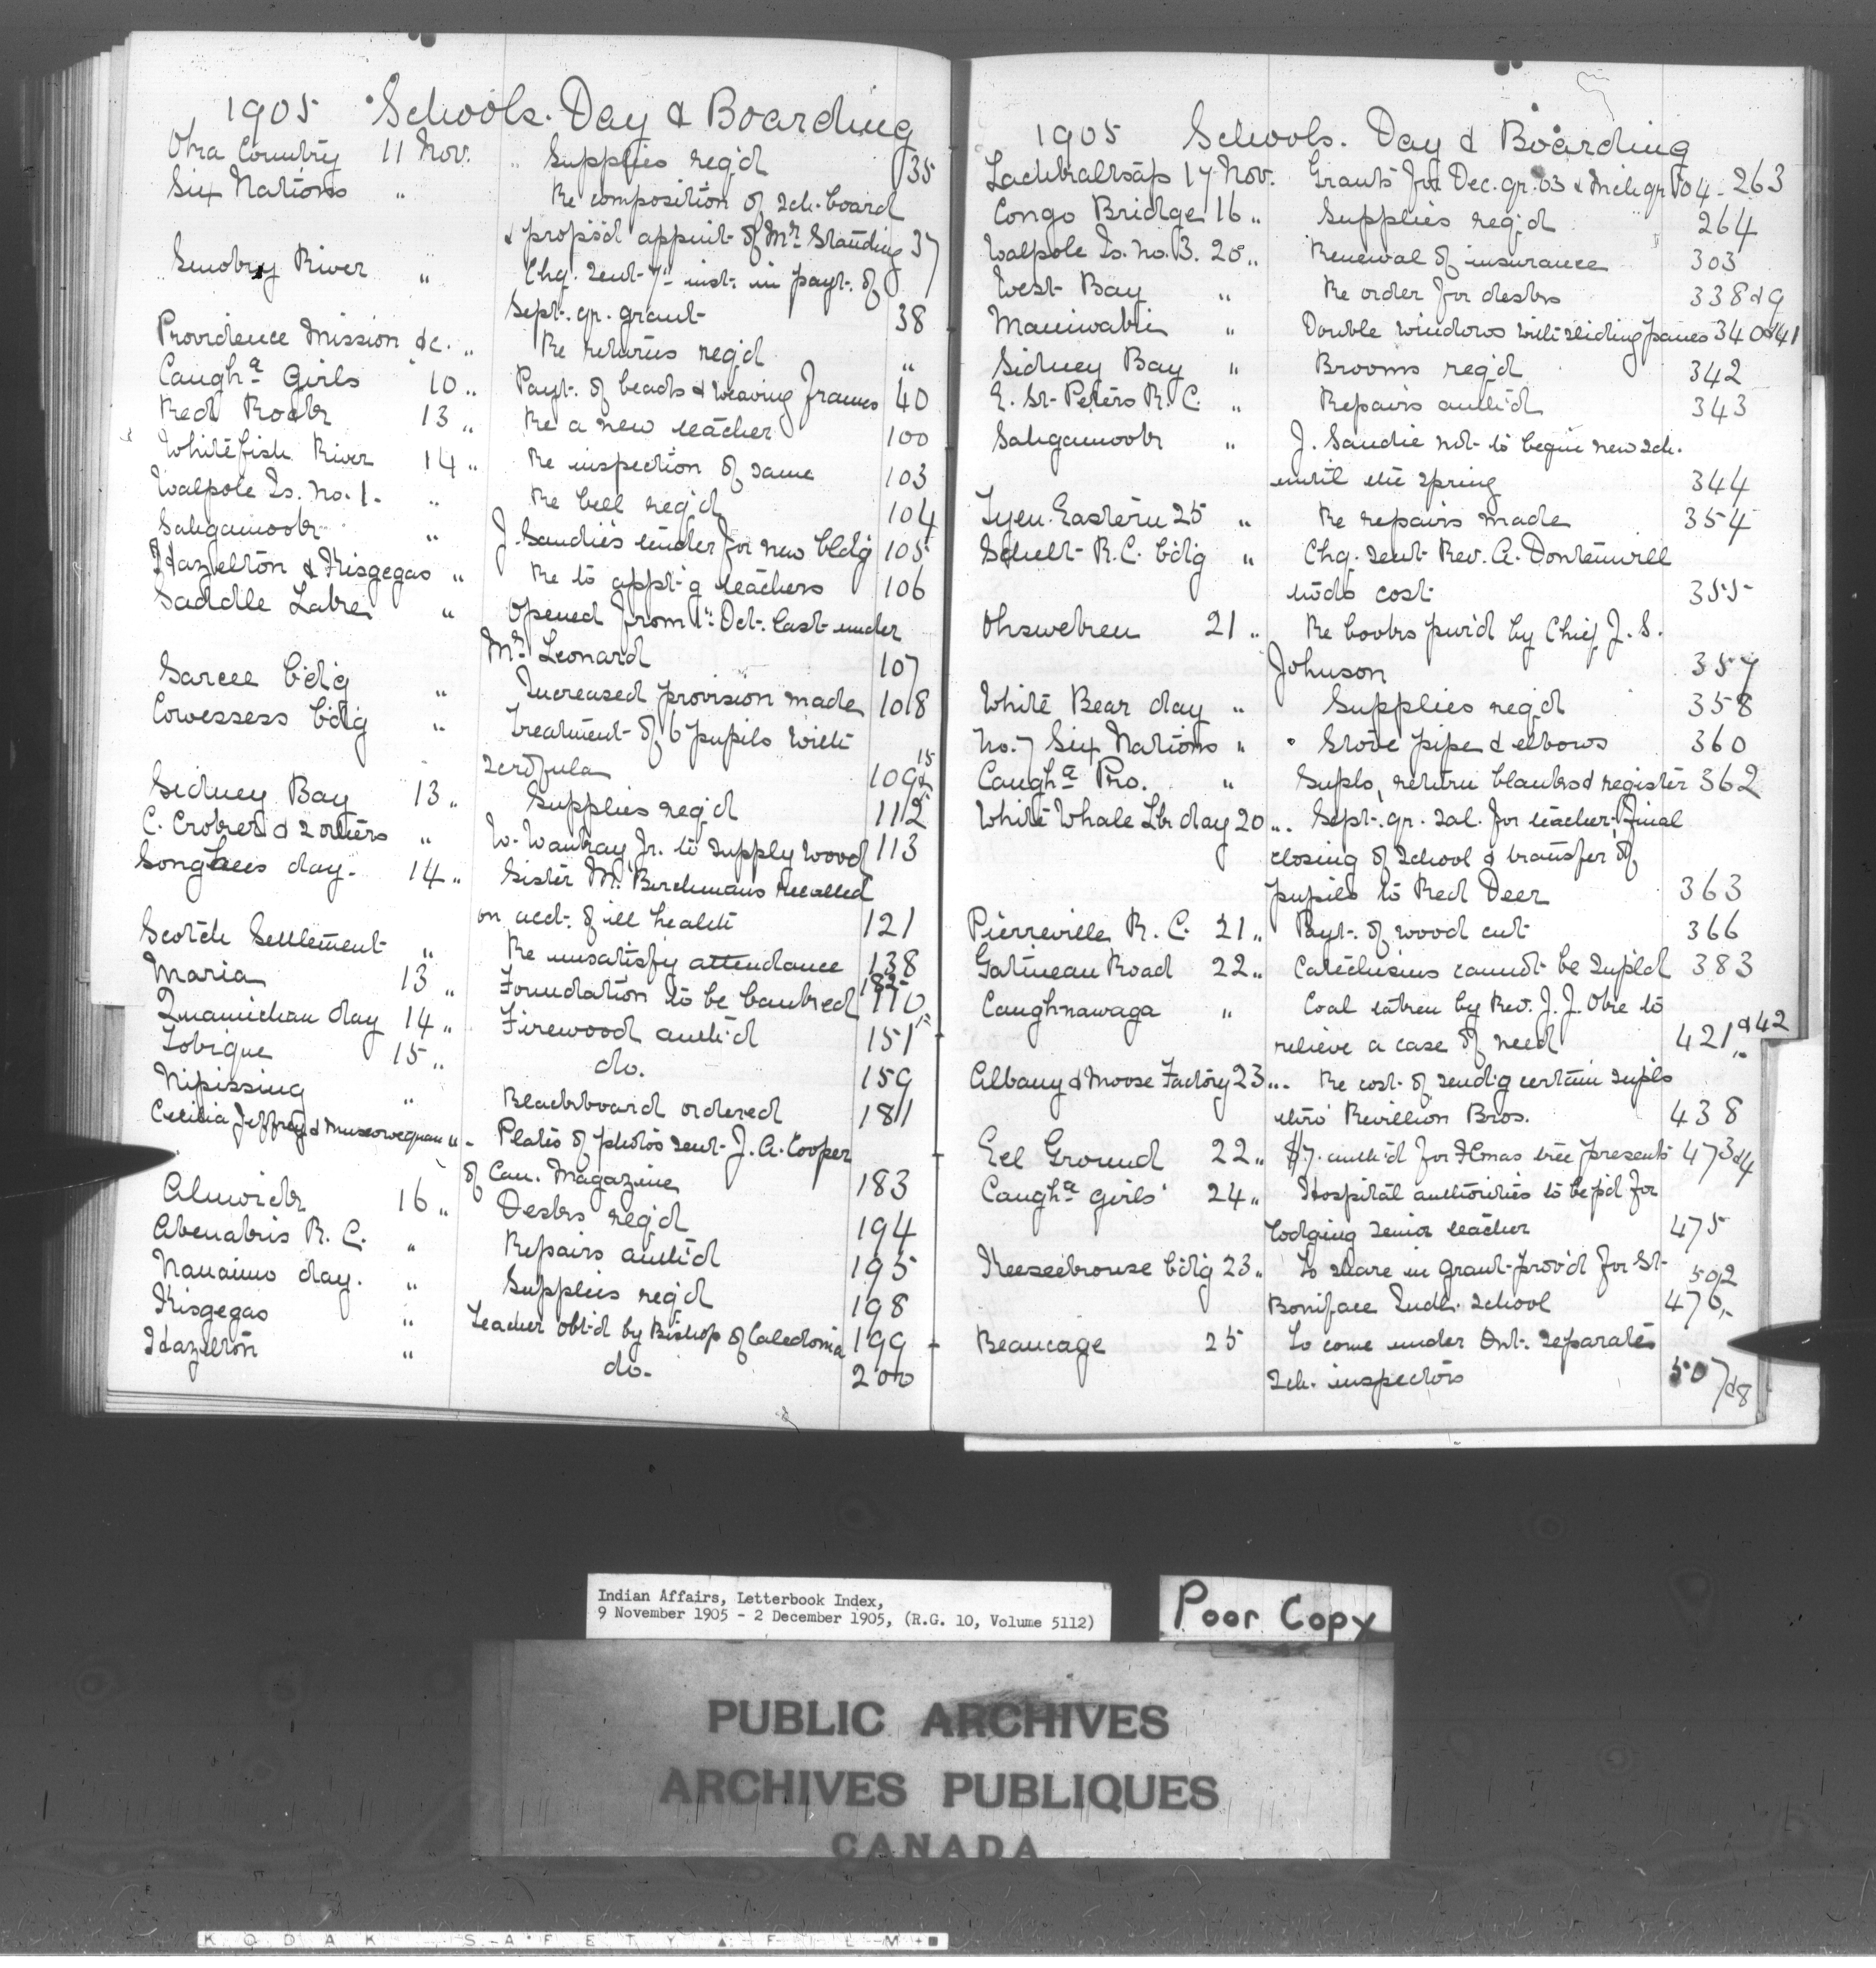 1905 Schools. Day & Boarding
Oka Country 11 Nov. " Supplies req'd 35
Six Nations " Re composition of sch. board
& propos'd appmt. of Mr. Standing 37
Smoky River " Chq. sent 7th inst. in payt. of
Sept. qr. grant 38
Providence Mission &c. " Re returns req'd "
Caugha Girls 10 " Payt. of beads & weaving frames 40
Red Rock 13 " Re a new teacher 100
Whitefish River 14 " Re inspection of same 103
Walpole Is. No. 1. " Re bell req'd 104
Sahgamook " J. Saudie's tender for new bldg 105
Hazelton & Kisgegas " Re to appt'g teachers 106
Saddle Lake " Opened from 1st Oct. last under
Mr. Leonard 107
Sarcee b'd'g " Increased provision made 108
Cowessess b'd'g " Treatment of 6 pupils with
scrofula 109 &
Sidney Bay 13 " Supplies req'd 112
C. Croker & 2 others " W. Waukay Jr. to supply wood 113
Songhees day. 14 " Sister M. Berchmans recalled
on acct. of ill health 121
Scotch Settlement " Re unsatisfy attendance 138
Maria 13 " Foundation to be banked 110
Quamichan day 14 " Firewood auth'd 151
Tobique 15 " do. 159
Nipissing " Blackboard ordered 181
Cecilia Jeffrey & Muscowequan " Plates of photos sent J. A. Cooper
of Can. Magazine 183
Alnwick 16 " Desks req'd 194
Abenakis R. C. " Repairs auth'd 195
Nanaimo day. " Supplies req'd 198
Kisgegas " Teacher obt'd by Bishop of Caledonia 199
Hazelton " do. 200
1905 Schools. Day & Boarding
Lachkaltsap 17 Nov. Grants for Dec. qr. 03 & Mch qr. 04 - 263
Congo Bridge 16 " Supplies req'd 264
Walpole Is. No. 3. 20 " Renewal of insurance 303
West Bay " Re order for desks 338 & 9
Maniwaki " Double windows with sliding panes 340 & 41
Sidney Bay " Brooms req'd 342
E. St. Peters R. C. " Repairs auth'd 343
Sahgamook " J. Saudie not to begin new sch.
until the spring 344
Tyen. Eastern 25 " Re repairs made 354
Sechelt R. C. b'd'g " Chq. sent Rev. A. Dontenwill
tow'ds cost 355
Ohsweken 21 " Re books pur'd by Chief J. S.
Johnson 357
White Bear day " Supplies req'd 358
No. 7 Six Nations " Stove pipe & elbows 360
Caugha Pro. " Supls, return blanks & register 362
White Whale Lk day 20 " Sept. qr. sal. for teacher, final
closing of School & transfer of
pupils to Red Deer 363
Pierreville R. C. 21 " Payt. of wood cut 366
Gatineau Road 22 " Catechisms cannot be supl'd 383
Caughnawaga " Coal taken by Rev. J. J. Oke to
relieve a case of need 421 & 42
Albany & Moose Factory 23 " Re cost of send'g certain supls
thro' Revillion Bros. 438
Eel Ground 22 " $7. auth'd for Xmas tree presents 473 & 4
Caugha girls' 24 " Hospital authorities to be p'd for
lodging senior teacher 475
Keeseekouse b'd'g 23 " To share in grant prov'd for St. 502
Boniface Indl. School 470
Beaucage 25 To come under Ont. separate
sch. inspectors 507 & 8
Indian Affairs, Letterbook Index,
9 November 1905 - 2 December 1905, (R.G. 10, Volume 5112)
Poor Copy
PUBLIC ARCHIVES
ARCHIVES PUBLIQUES
CANADA
KODAK SAFETY FILM